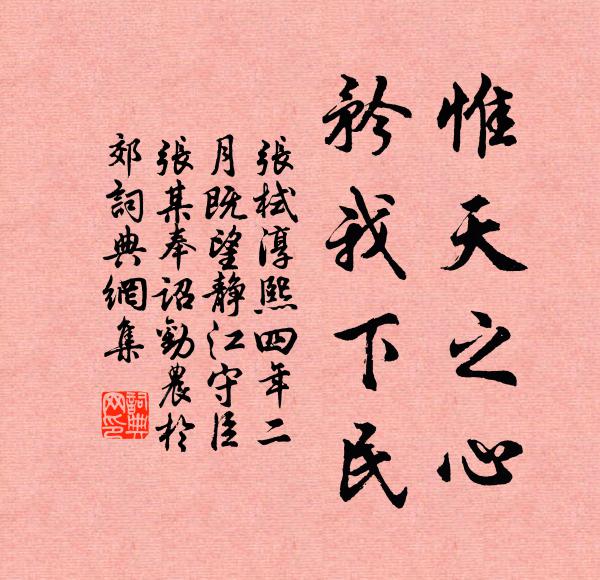 惟天之心
矜我下民
張栻淳熙四年二
月既望靜江守臣
張某奉詔勸農於
郊詞典網集
詞典
网印